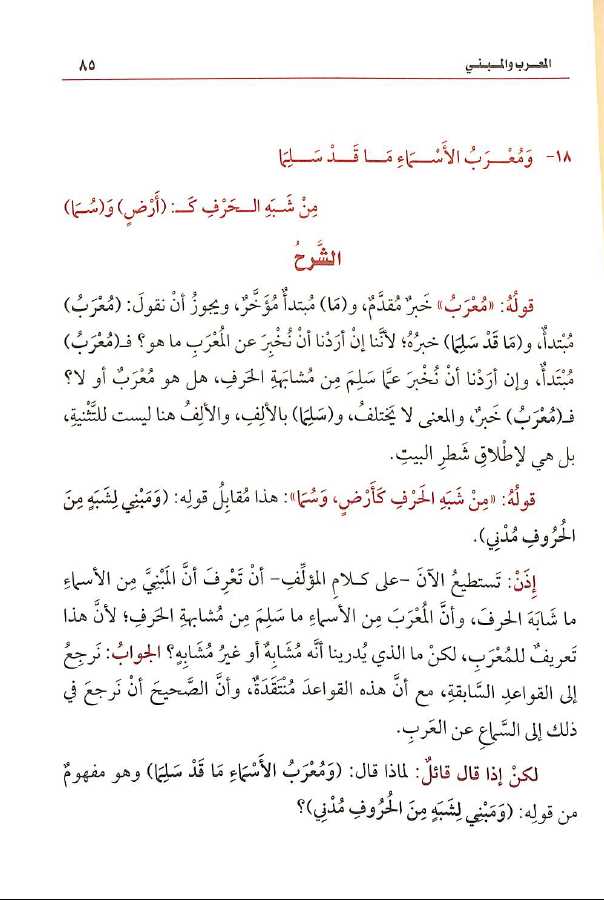 المعرب والمبني ٨٥
١٨- وَمُعْرَبُ الأَسْمَاءِ مَا قَدْ سَلِمَا
مِنْ شَبَهِ الحَرْفِ كَـ: (أَرْضٍ) وَ(سُمَا)
الشَّرحُ
قولُهُ: «مُعْرَبُ» خَبرٌ مُقدَّمٌ، و(مَا) مُبتدأٌ مُؤَخَّرٌ، ويجوزُ أنْ نقولَ: (مُعْرَبُ)
مُبْتدأٌ، و(مَا قَدْ سَلِمَا) خبرُهُ؛ لأنَّنا إن أرَدْنا أنْ نُخْبِرَ عن المُعْرَبِ ما هو؟ فـ(مُعْرَبُ)
مُبْتَدأٌ، وإن أردْنا أنْ نُخْبَرَ عمَّا سَلِمَ مِن مُشابَهةِ الحَرفِ، هل هو مُعْرَبٌ أو لا؟
فـ(مُعْرَبُ) خَبرٌ، والمعنى لا يَختلفُ، و(سَلِمَا) بالألِفِ، والألِفُ هنا ليست للتَّثْنيةِ،
بل هي لإطْلاقِ شَطرِ البيتِ.
قولُهُ: «مِن شَبَهِ الحَرْفِ كَأَرْضٍ، وَسُمَا»: هذا مُقابِلُ قولِهِ: (وَمَبْنِي لِشَبَهٍ مِنَ
الحُرُوفِ مُدْنِي).
إذَنْ: تَستطيعُ الآنَ -على كلامِ المؤلِّفِ- أنْ تَعْرِفَ أنَّ المَبْنِيَّ مِن الأسماءِ
ما شابَهَ الحرفَ، وأنَّ المُعْرَبَ مِن الأسماءِ ما سَلِمَ مِن مُشابهةِ الحَرفِ؛ لأنَّ هذا
تَعريفٌ للمُعْرَبِ، لكنْ ما الذي يُدرينا أنَّه مُشابِهٌ أو غيرُ مُشَابِهٍ؟ الجوابُ: نَرجِعُ
إلى القواعدِ السَّابقةِ، مع أنَّ هذه القواعدَ مُنْتَقَدَةٌ، وأنَّ الصَّحيحَ أنْ نَرجعَ في
ذلك إلى السَّماعِ عن العَربِ.
لكنْ إذا قال قائلٌ: لماذا قال: (وَمُعْرَبُ الأَسْمَاءِ مَا قَدْ سَلِمَا) وهو مفهومٌ
من قولِه: (وَمَبْنِي لِشَبَهٍ مِنَ الحُرُوفِ مُدْنِي)؟